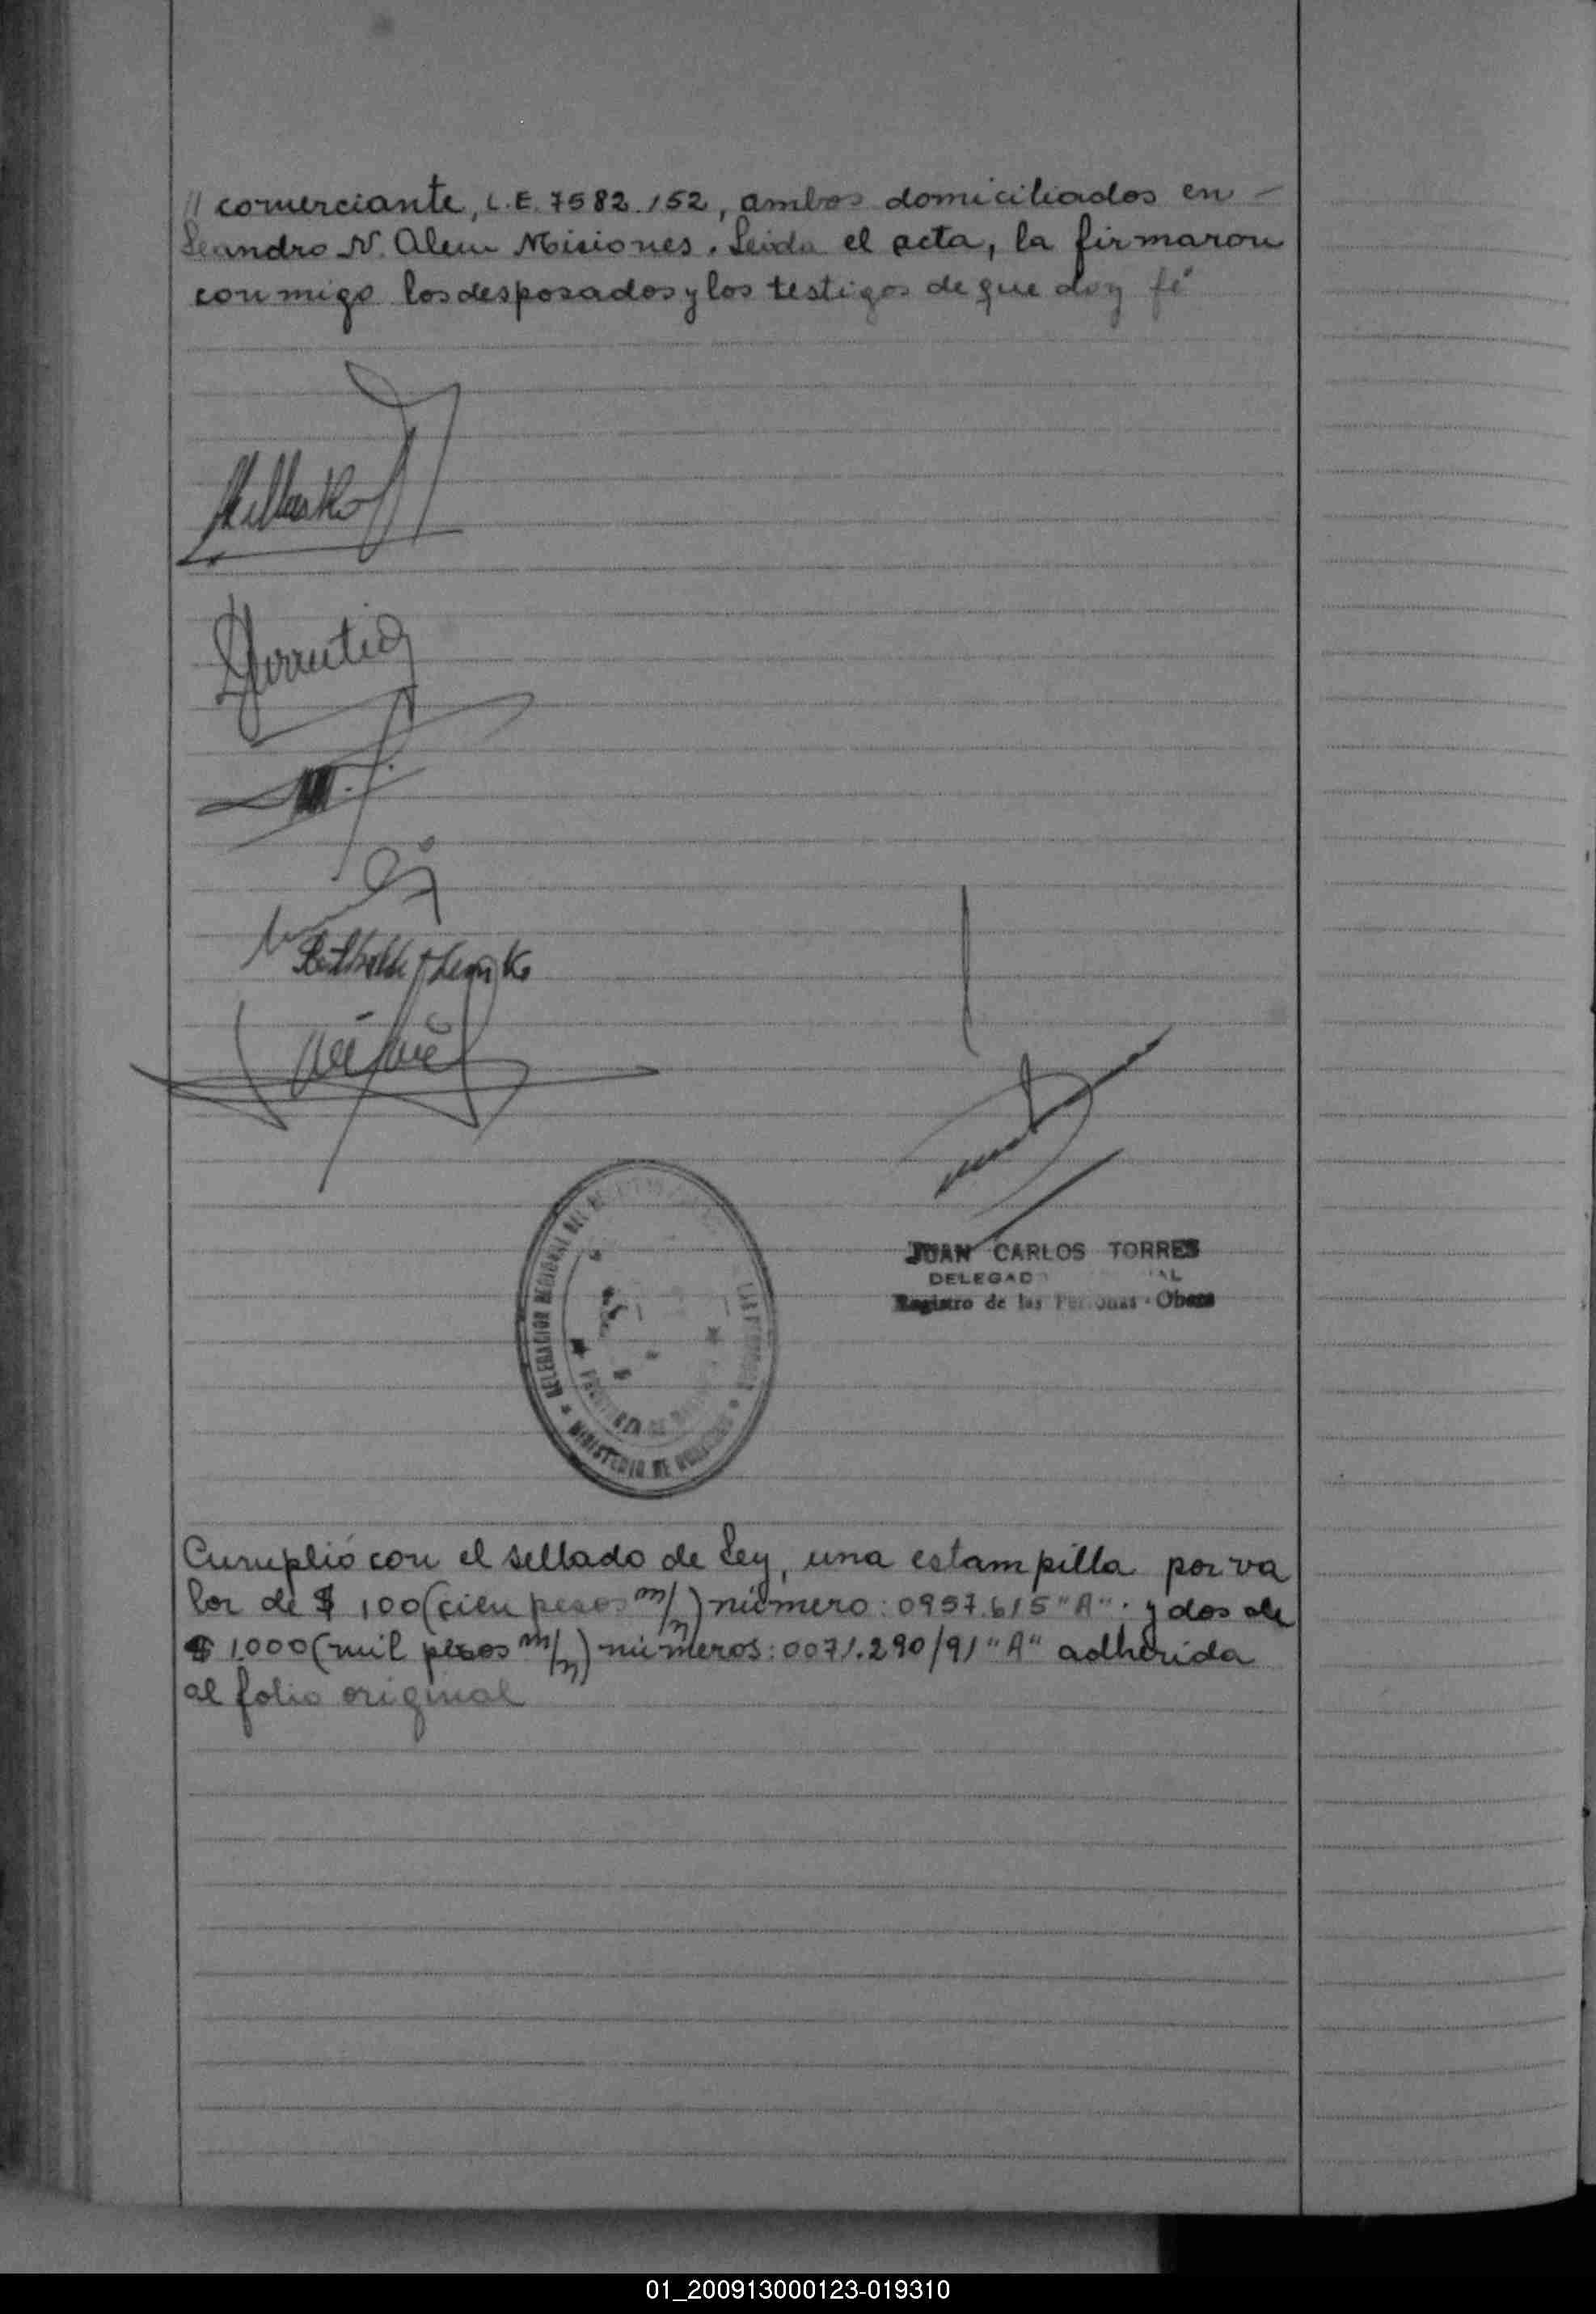 // comerciante, L.E. 7582.152, ambos domiciliados en -
Leandro N. Alem Misiones. Leida el acta, la firmaron
conmigo los desposados y los testigos de que doy fé
DELEGACION REGIONAL DEL
MINISTERIO DE
JUAN CARLOS TORRES
DELEGAD
Registro de las Personas - Obera
Cumplió con el sellado de Ley, una estampilla por va
lor de $ 100 (cien pesos m/n) número: 0957.615 "A". y dos de
$ 1.000 (mil pesos m/n) números: 0071.290/91 "A" adherida
al folio original
01_200913000123-019310